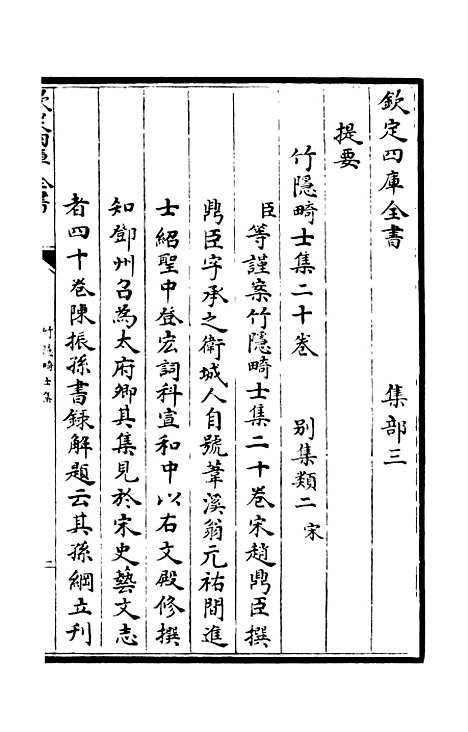 欽定四庫全書 集部三
提要
竹隠畸士集二十卷 别集類二 宋
臣等謹案竹隠畸士集二十卷宋趙鼎臣撰
鼎臣字承之衛城人自號葦溪翁元祐間進
士紹聖中登宏詞科宣和中以右文殿修撰
知鄧州召為太府卿其集見於宋史藝文志
者四十卷陳振孫書録解題云其孫綱立刊
欽定四庫全書
竹隠畸士集